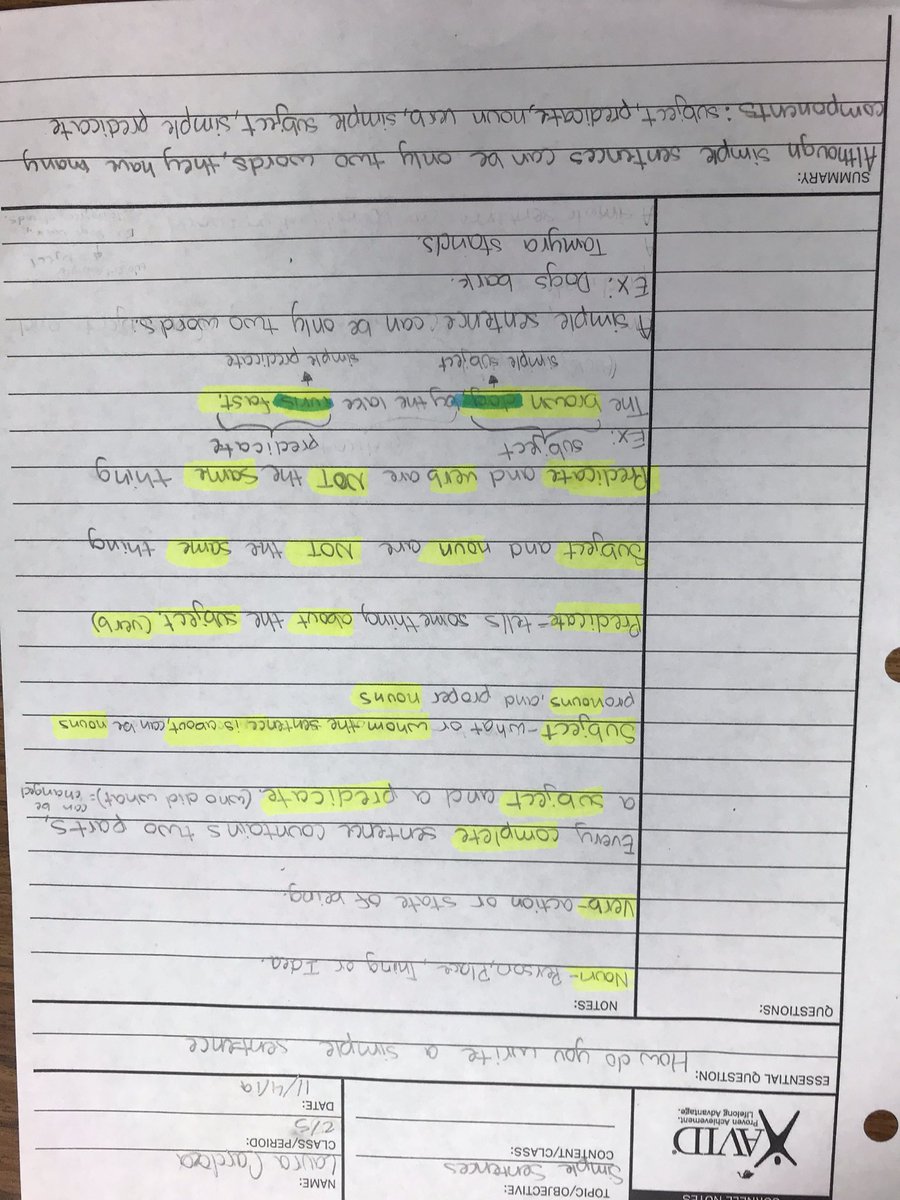 CORNELL NOTES
AVID
Proven Achievement.
Lifelong Advantage.
TOPIC/OBJECTIVE:
Simple Sentences
CONTENT/CLASS:
NAME:
Laura Cardoza
CLASS/PERIOD:
2/5
DATE:
11/4/19
ESSENTIAL QUESTION:
How do you write a simple sentence
QUESTIONS:
NOTES:
Noun- Person, Place, Thing or Idea.
Verb-action or state of being.
Every complete sentence countains two parts,
a subject and a predicate. (who did what) = can be changed
Subject-what or whom the sentence is about, can be nouns
pronouns, and proper nouns
Predicate-tells something about the subject (verb)
Subject and noun are NOT the same thing
Predicate and verb are NOT the same thing
Ex: subject predicate
The brown dog by the lake runs fast.
simple subject simple predicate
A simple sentence can be only two words.
Ex: Dogs bark.
Tamyra stands.
SUMMARY:
Although simple sentences can be only two words, they have many
components: subject, predicate, noun verb, simple subject, simple predicate